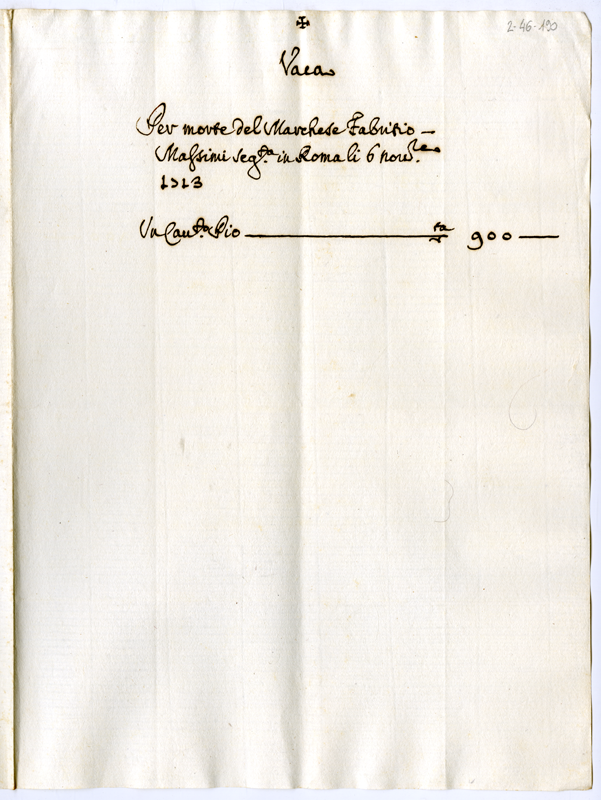 ✠
2-46-190
Vaca
Per morte del Marchese Fabritio —
Massimi seg.ta in Roma li 6 nov.bre
1713
Un Cau.to Pio ——— 900 —